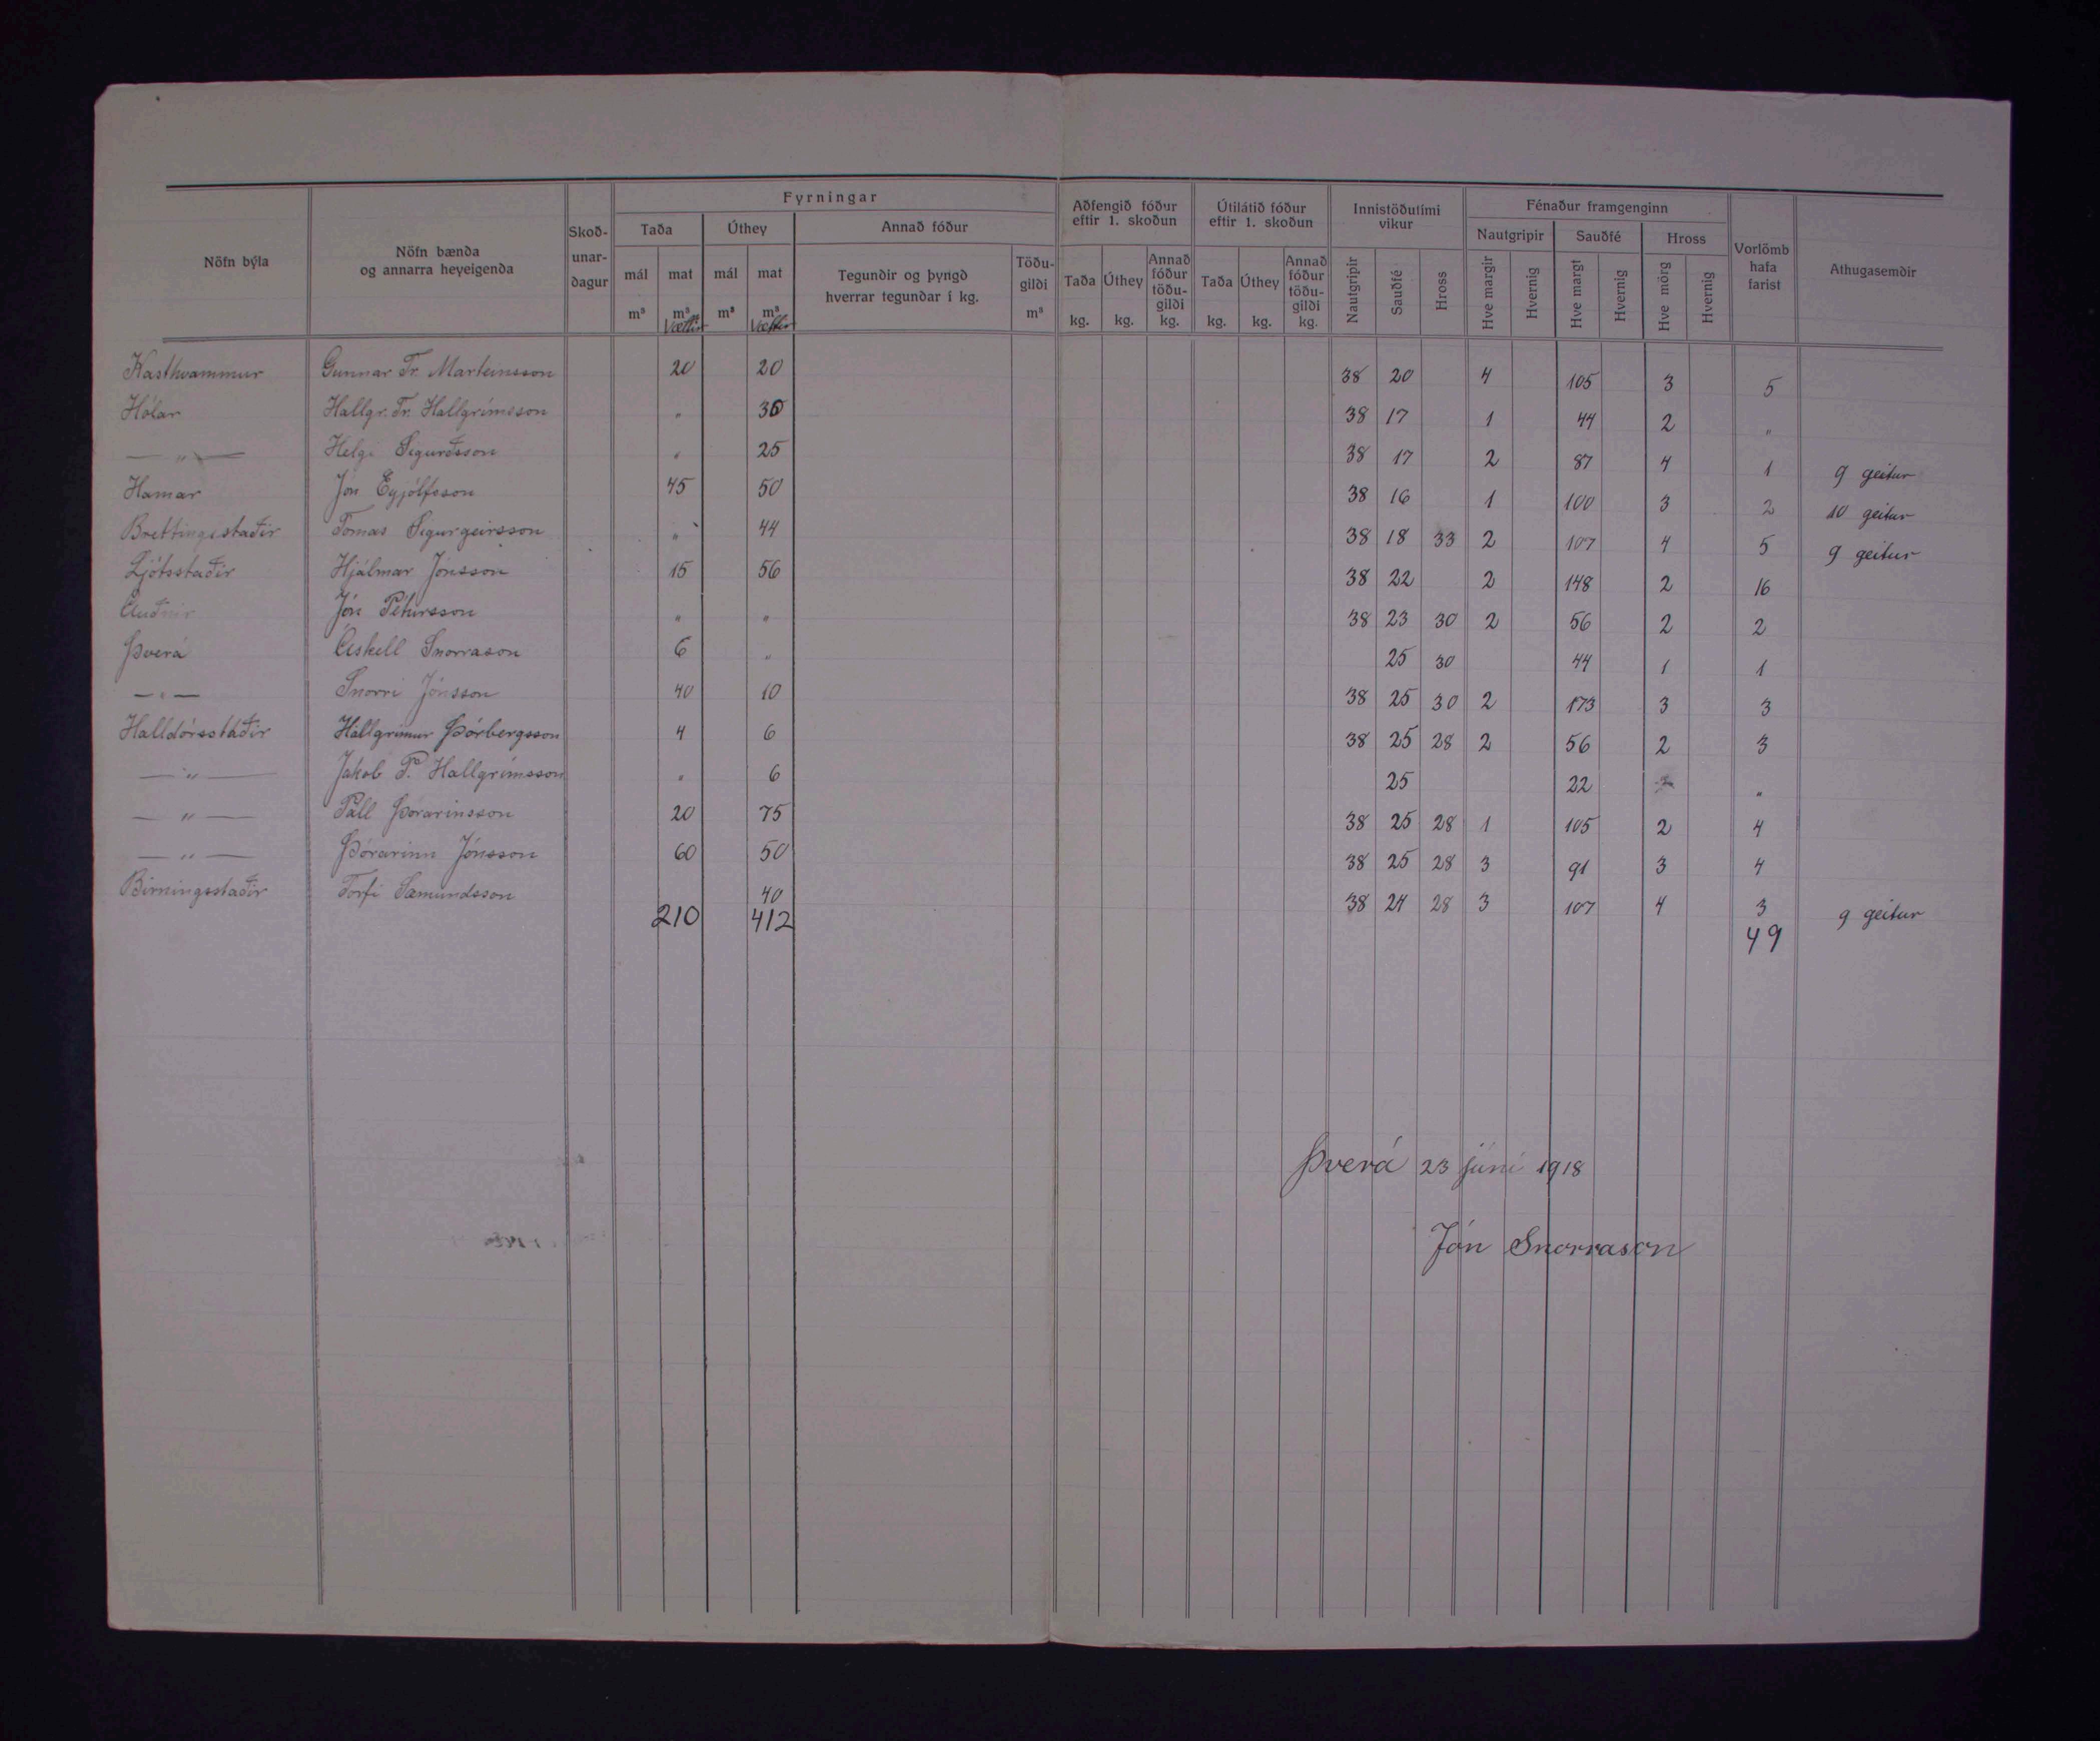 Fyrningar
Aðfengið fóður eftir 1. skoðun
Útilátið fóður eftir 1. skoðun
Innistöðutími vikur
Fénaður framgenginn
Nöfn býla
Nöfn bænda og annarra heyeigenda
Skoð-unar-dagur
Taða
Úthey
Annað fóður
Nautgripir
Sauðfé
Hross
Vorlömb hafa farist
Athugasemdir
mál m³
mat m³ Vættir
mál m³
mat m³ Vættir
Tegundir og þyngd hverrar tegundar í kg.
Töðu-gildi m³
Taða kg.
Úthey kg.
Annað fóður töðu-gildi kg.
Taða kg.
Úthey kg.
Annað fóður töðu-gildi kg.
Nautgripir
Sauðfé
Hross
Hve margir
Hvernig
Hve margt
Hvernig
Hve mörg
Hvernig
Kasthvammur Gunnar Tr. Marteinsson 20 20 38 20 4 105 3 5
Hólar Hallgr. Tr. Hallgrímsson " 30 38 17 1 44 2 "
— " — Helgi Sigurðsson " 25 38 17 2 87 4 1 9 geitur
Hamar Jón Eyjólfsson 45 50 38 16 1 100 3 2 10 geitur
Brettingsstaðir Tomas Sigurgeirsson " 44 38 18 33 2 107 4 5 9 geitur
Ljótsstaðir Hjálmar Jónsson 15 56 38 22 2 148 2 16
Auðnir Jón Pétursson " " 38 23 30 2 56 2 2
Þverá Áskell Snorrason 6 " 25 30 44 1 1
— " — Snorri Jónsson 40 10 38 25 30 2 173 3 3
Halldórsstaðir Hallgrímur Þórbergsson 4 6 38 25 28 2 56 2 3
— " — Jakob P. Hallgrímsson " 6 25 22 "
— " — Páll Þórarinsson 20 75 38 25 28 1 105 2 4
— " — Þórarinn Jónsson 60 50 38 25 28 3 91 3 4
Birningsstaðir Torfi Sæmundsson 40 38 24 28 3 107 4 3 9 geitur
210 412 49
Þverá 23 júní 1918
Jón Snorrason